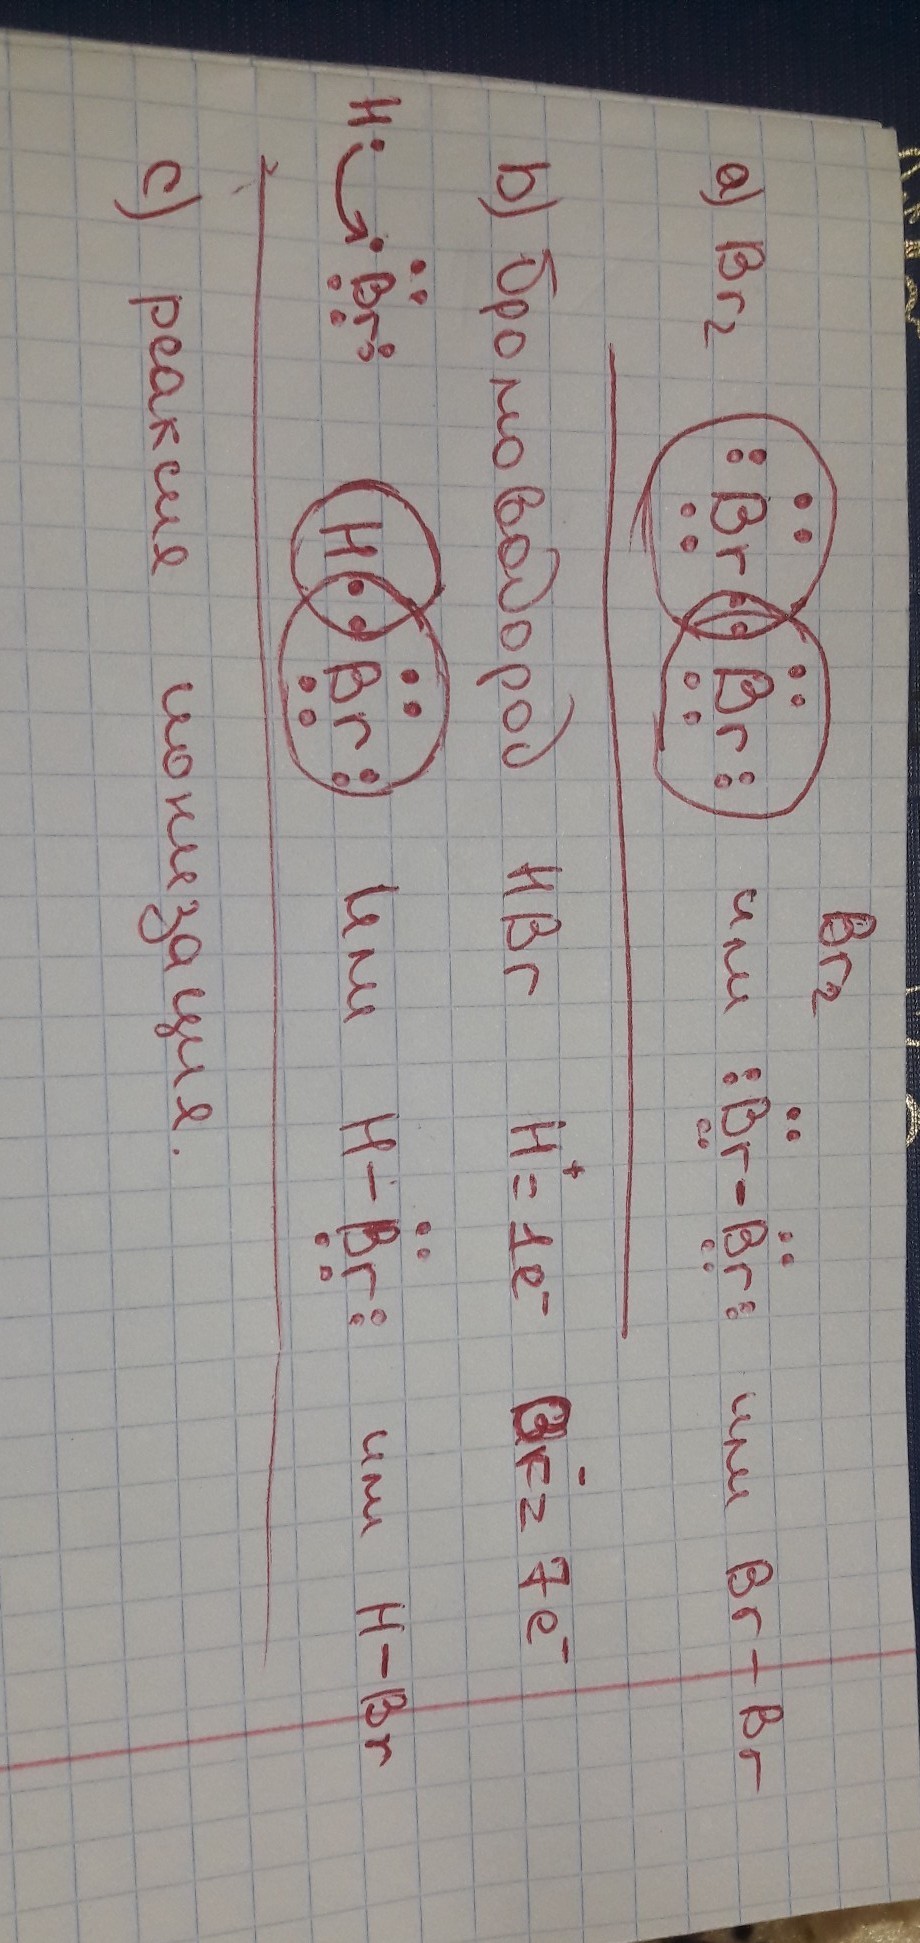 Br₂
a) Br₂ :Br:Br: или :Br-Br: или Br-Br
b) бромоводород HBr H⁺=1e⁻ Br⁻= 7e⁻
H· ·Br: H:Br: или H-Br: или H-Br
c) реаксие ионизация.